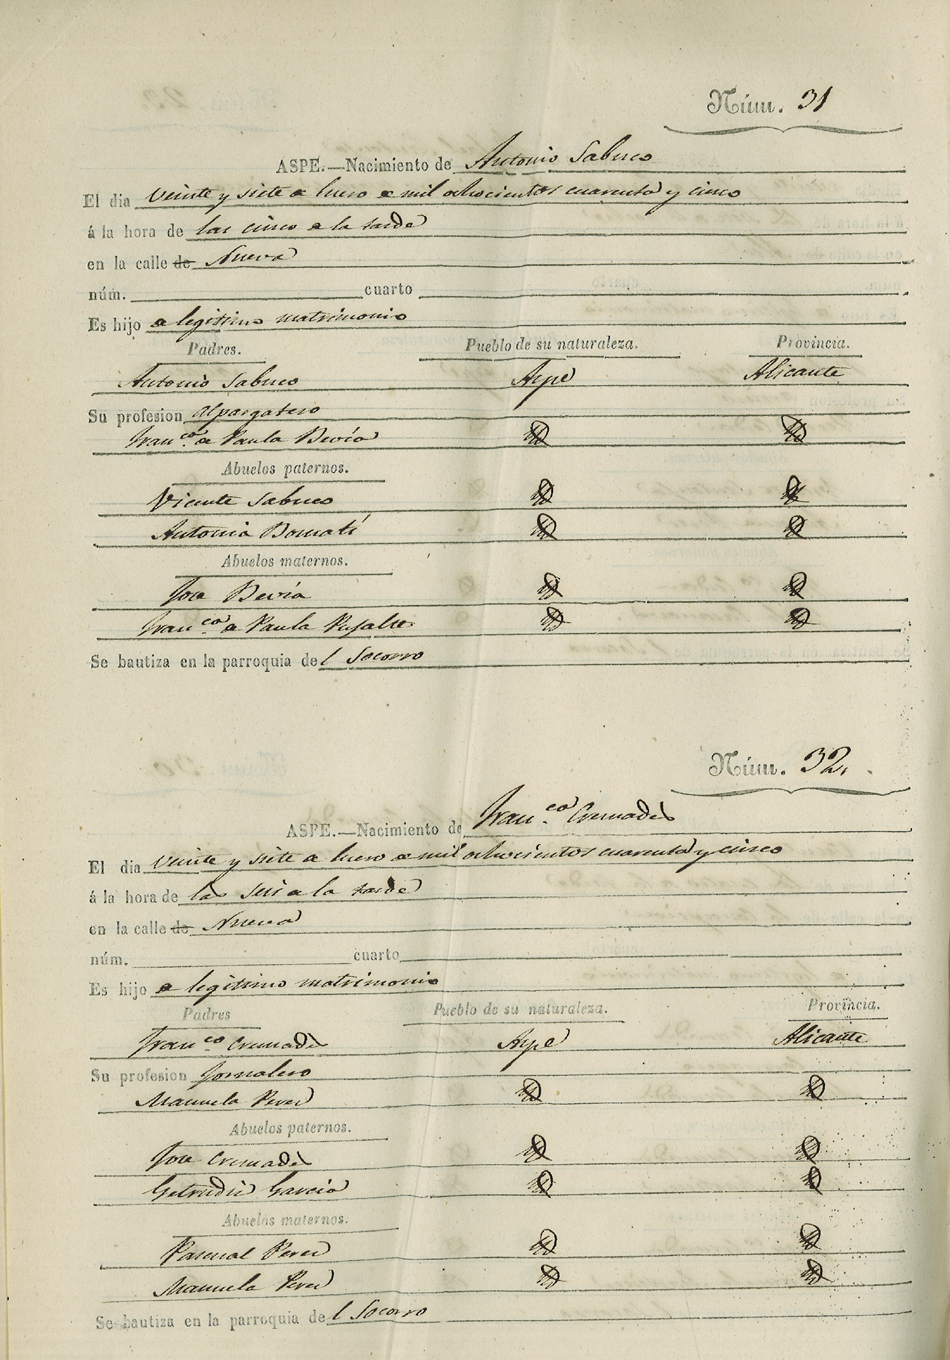 Núm. 31
ASPE.—Nacimiento de Antonio Sabuco
El dia veinte y siete de Enero de mil ochocientos cuarenta y cinco
á la hora de las cinco de la tarde
en la calle de Nueva
núm. cuarto
Es hijo de legitimo matrimonio
Padres. Pueblo de su naturaleza. Provincia.
Antonio Sabuco Aspe Alicante
Su profesion alpargatero
Fran.ca de Paula Bevia
Abuelos paternos.
Vicente Sabuco
Antonia Bomati
Abuelos maternos.
Jose Bevia
Fran.ca de Paula
Se bautiza en la parroquia del Socorro
Núm. 32.
ASPE.—Nacimiento de Fran.co Cremades
El dia veinte y siete de Enero de mil ochocientos cuarenta y cinco
á la hora de las seis de la tarde
en la calle de Nueva
núm. cuarto
Es hijo de legitimo matrimonio
Padres Pueblo de su naturaleza. Provincia.
Fran.co Cremades Aspe Alicante
Su profesion Jornalero
Manuela Perez
Abuelos paternos.
Jose Cremades
Getrudis Garcia
Abuelos maternos.
Pascual Perez
Manuela Perez
Se bautiza en la parroquia del Socorro